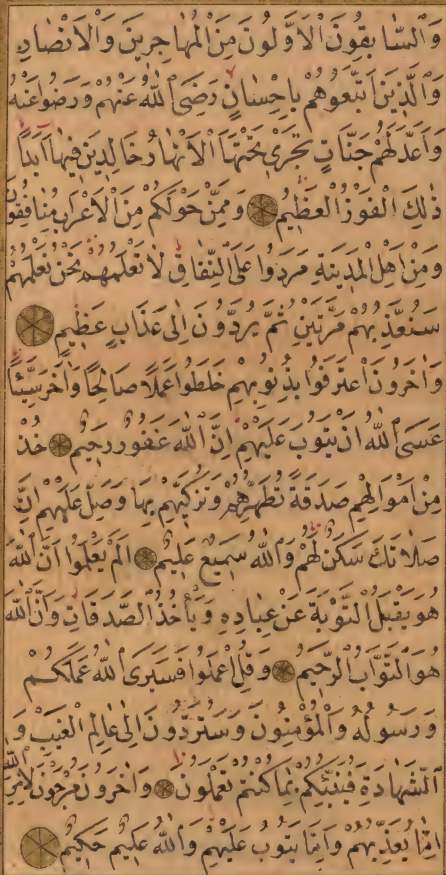 وَالسَّابِقُونَ الْاَوَّلُونَ مِنَ الْمُهَاجِرِينَ وَالْاَنْصَارِ
وَالَّذِينَ اتَّبَعُوهُمْ بِاِحْسَانٍ رَضِىَ اللّٰهُ عَنْهُمْ وَرَضُوا عَنْهُ
وَاَعَدَّ لَهُمْ جَنَّاتٍ تَجْرِى تَحْتَهَا الْاَنْهَارُ خَالِدِينَ فِيهَا اَبَدًا
ذٰلِكَ الْفَوْزُ الْعَظِيمُ وَمِمَّنْ حَوْلَكُمْ مِنَ الْاَعْرَابِ مُنَافِقُونَ
وَمِنْ اَهْلِ الْمَدِينَةِ مَرَدُوا عَلَى النِّفَاقِ لَا تَعْلَمُهُمْ نَحْنُ نَعْلَمُهُمْ
سَنُعَذِّبُهُمْ مَرَّتَيْنِ ثُمَّ يُرَدُّونَ اِلٰى عَذَابٍ عَظِيمٍ
وَاٰخَرُونَ اعْتَرَفُوا بِذُنُوبِهِمْ خَلَطُوا عَمَلًا صَالِحًا وَاٰخَرَ سَيِّئًا
عَسَى اللّٰهُ اَنْ يَتُوبَ عَلَيْهِمْ اِنَّ اللّٰهَ غَفُورٌ رَحِيمٌ خُذْ
مِنْ اَمْوَالِهِمْ صَدَقَةً تُطَهِّرُهُمْ وَتُزَكِّيهِمْ بِهَا وَصَلِّ عَلَيْهِمْ اِنَّ
صَلَاتَكَ سَكَنٌ لَهُمْ وَاللّٰهُ سَمِيعٌ عَلِيمٌ اَلَمْ يَعْلَمُوا اَنَّ اللّٰهَ
هُوَ يَقْبَلُ التَّوْبَةَ عَنْ عِبَادِهِ وَيَأْخُذُ الصَّدَقَاتِ وَاَنَّ اللّٰهَ
هُوَ التَّوَّابُ الرَّحِيمُ وَقُلِ اعْمَلُوا فَسَيَرَى اللّٰهُ عَمَلَكُمْ
وَرَسُولُهُ وَالْمُؤْمِنُونَ وَسَتُرَدُّونَ اِلٰى عَالِمِ الْغَيْبِ وَ
الشَّهَادَةِ فَيُنَبِّئُكُمْ بِمَا كُنْتُمْ تَعْمَلُونَ وَاٰخَرُونَ مُرْجَوْنَ لِاَمْرِ اللّٰهِ
اِمَّا يُعَذِّبُهُمْ وَاِمَّا يَتُوبُ عَلَيْهِمْ وَاللّٰهُ عَلِيمٌ حَكِيمٌ